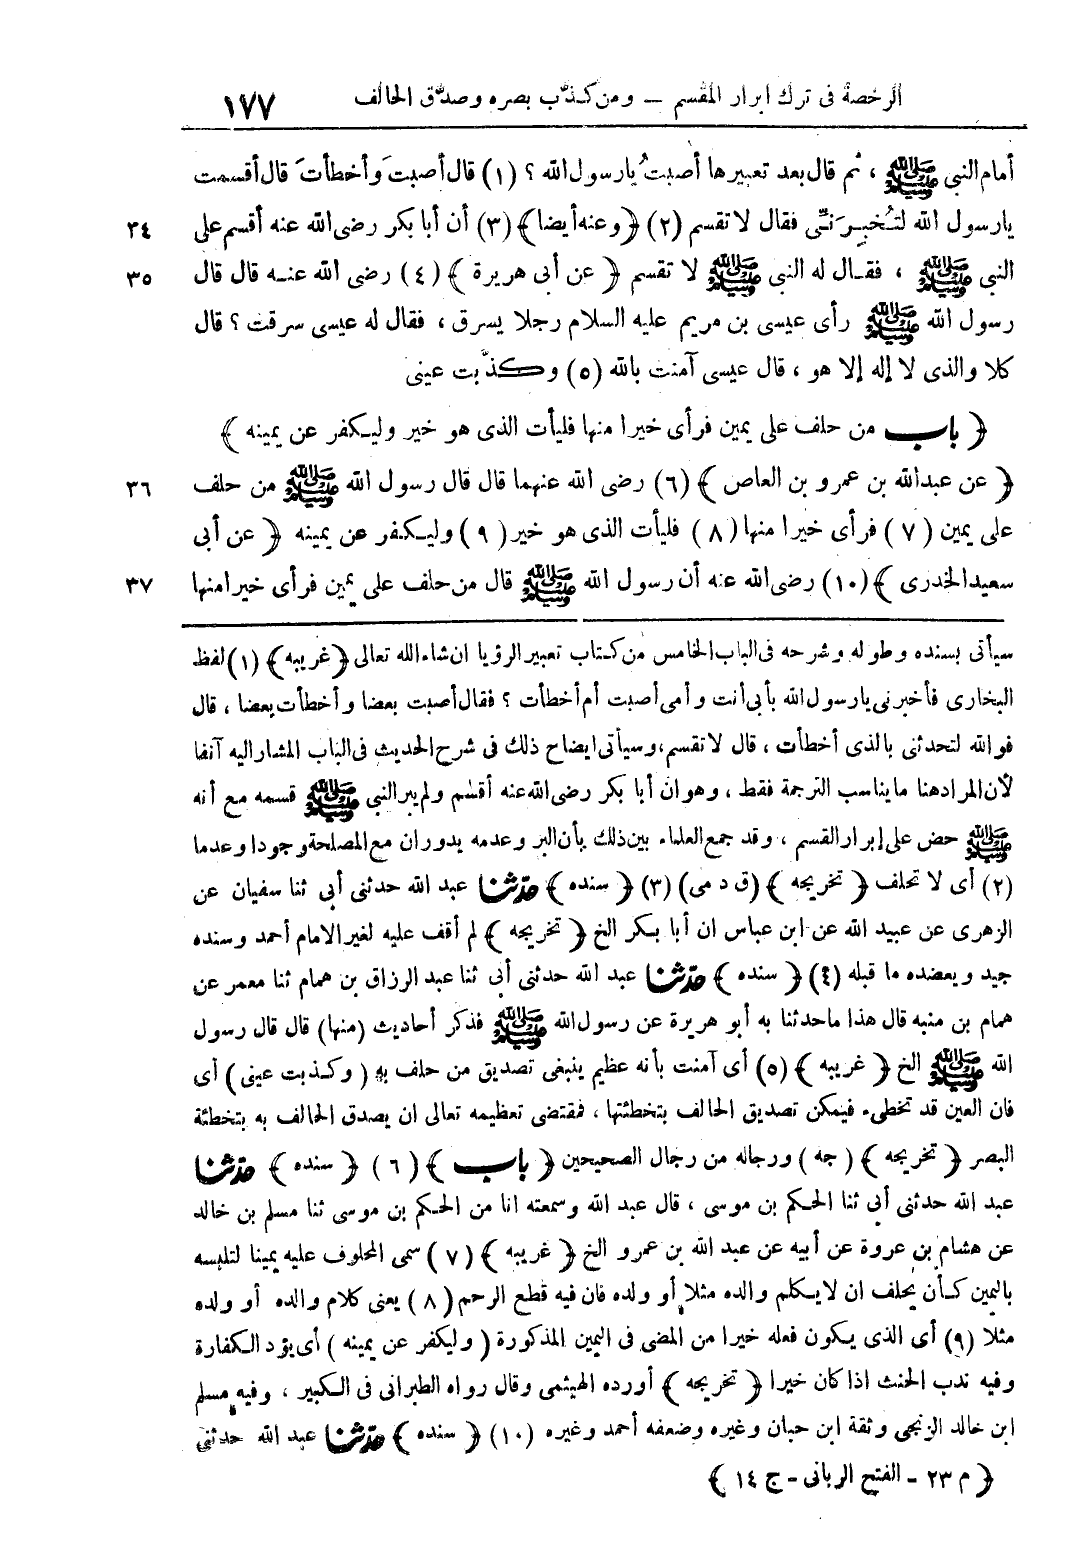 الرخصة فى ترك ابرار المقسم — ومن كذّب بصره وصدّق الحالف ١٧٧
أمام النبي ﷺ ، ثم قال بعد تعبيرها أصبتُ يارسول الله ؟ (١) قال أصبتَ وأخطأتَ قال أقسمت
يارسول الله لتُخبِرَنِّى فقال لا تقسم (٢) ﴿وعنه أيضا﴾ (٣) أن أبا بكر رضى الله عنه أقسم على ٣٤
النبى ﷺ ، فقال له النبى ﷺ لا تقسم ﴿ عن أبى هريرة ﴾ (٤) رضى الله عنه قال قال ٣٥
رسول الله ﷺ رأى عيسى بن مريم عليه السلام رجلا يسرق ، فقال له عيسى سرقت ؟ قال
كلا والذى لا إله إلا هو ، قال عيسى آمنت بالله (٥) وكذّبت عينى
﴿ باب من حلف على يمين فرأى خيرا منها فليأت الذى هو خير وليكفر عن يمينه ﴾
﴿ عن عبدالله بن عمرو بن العاص ﴾ (٦) رضى الله عنهما قال قال رسول الله ﷺ من حلف ٣٦
على يمين (٧) فرأى خيرا منها (٨) فليأت الذى هو خير (٩) وليكفر عن يمينه ﴿ عن أبى
سعيد الخدرى ﴾ (١٠) رضى الله عنه أن رسول الله ﷺ قال من حلف على يمين فرأى خيرا منها ٣٧
سيأتى بسنده وطوله وشرحه فى الباب الخامس من كتاب تعبير الرؤيا ان شاء الله تعالى ﴿غريبه﴾ (١) لفظ
البخارى فأخبرنى يارسول الله بأبى أنت وأمى أصبت أم أخطأت ؟ فقال أصبت بعضا وأخطأت بعضا ، قال
فوالله لتحدثنى بالذى أخطأت ، قال لا تقسم، وسيأتى ايضاح ذلك فى شرح الحديث فى الباب المشار اليه آنفا
لأن المراد هنا ما يناسب الترجمة فقط ، وهو ان أبا بكر رضى الله عنه أقسم ولم يبر النبي ﷺ قسمه مع أنه
ﷺ حض على إبرار القسم ، وقد جمع العلماء بين ذلك بأن البر وعدمه يدوران مع المصلحة وجودا وعدما
(٢) أى لا تحلف ﴿ تخريجه ﴾ (ق د مى) (٣) ﴿ سنده ﴾ حدّثنا عبد الله حدثنى أبى ثنا سفيان عن
الزهرى عن عبيد الله عن ابن عباس ان أبا بكر الخ ﴿ تخريجه ﴾ لم أقف عليه لغير الامام أحمد وسنده
جيد ويعضده ما قبله (٤) ﴿ سنده ﴾ حدّثنا عبد الله حدثنى أبى ثنا عبد الرزاق بن همام ثنا معمر عن
همام بن منبه قال هذا ما حدثنا به أبو هريرة عن رسول الله ﷺ فذكر أحاديث (منها) قال قال رسول
الله ﷺ الخ ﴿ غريبه ﴾ (٥) أى آمنت بأنه عظيم ينبغى تصديق من حلف به (وكذبت عينى) أى
فان العين قد تخطىء فيمكن تصديق الحالف بتخطئتها ، فمقتضى تعظيمه تعالى ان يصدق الحالف به بتخطئة
البصر ﴿ تخريجه ﴾ (جه) ورجاله من رجال الصحيحين ﴿ باب ﴾ (٦) ﴿ سنده ﴾ حدّثنا
عبد الله حدثنى أبى ثنا الحكم بن موسى ، قال عبد الله وسمعته انا من الحكم بن موسى ثنا مسلم بن خالد
عن هشام بن عروة عن أبيه عن عبد الله بن عمرو الخ ﴿ غريبه ﴾ (٧) سمى المحلوف عليه يمينا لتلبسه
باليمين كأن يحلف ان لا يكلم والده مثلا أو ولده فان فيه قطع الرحم (٨) يعنى كلام والده أو ولده
مثلا (٩) أى الذى يكون فعله خيرا من المضى فى اليمين المذكورة (وليكفر عن يمينه) أى يؤد الكفارة
وفيه ندب الحنث اذا كان خيرا ﴿ تخريجه ﴾ أورده الهيثمى وقال رواه الطبرانى فى الكبير ، وفيه مسلم
ابن خالد الزنجى وثقة ابن حبان وغيره وضعفه أحمد وغيره (١٠) ﴿ سنده ﴾ حدّثنا عبد الله حدثنى
﴿ م ٢٣ - الفتح الربانى - ج ١٤ ﴾